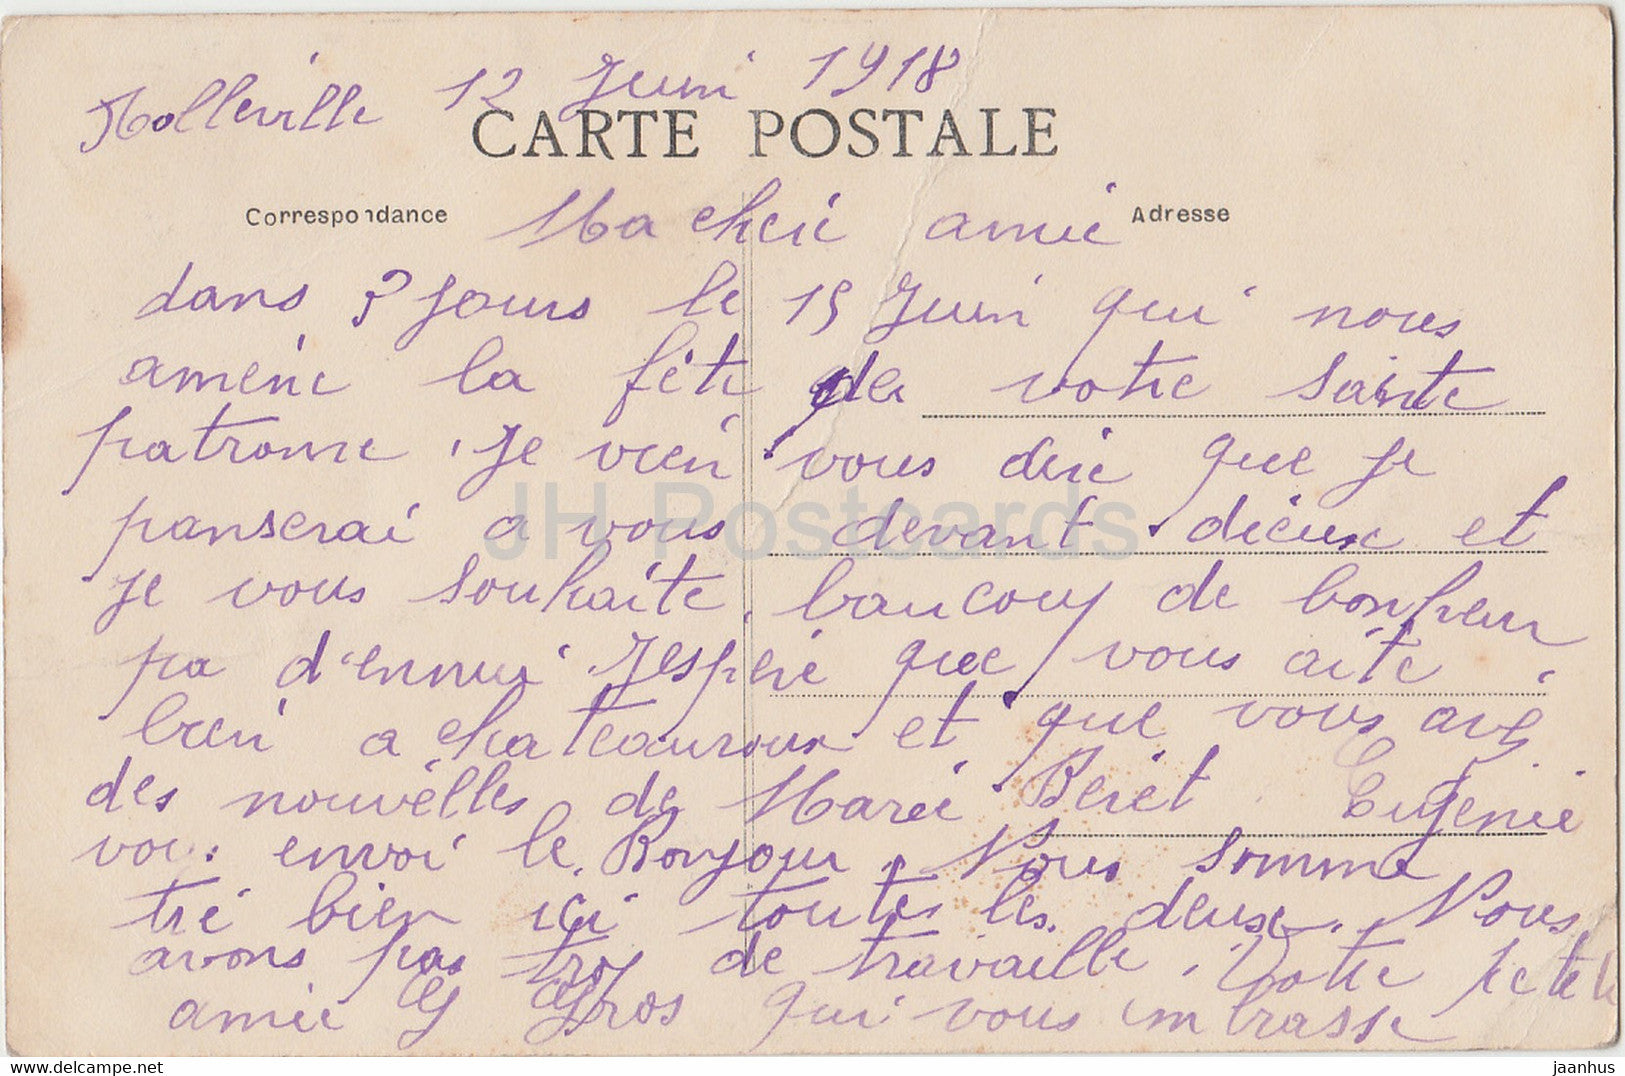 Molleville 12 Juin 1918
CARTE POSTALE
Correspondance
Adresse
Ma cheri amie
dans 3 Jours le 15 Juin qui nous
amène la fête de votre Sainte
patronne, Je vien vous dire que je
panserai a vous devant dieux et
Je vous Souhaite baucoup de bonheur
pa d'ennui Jespère que vous aite
bien a chateauroux et que vous avez
des nouvelles de Marie Beret Eugenie
vous envoi le Bonjour. Nous Somme
tré bien içi toutes les deux. Nous
avons pas trop de travaille. Votre petite
amie G Gros qui vous imbrasse
JH Postcards
delcampe.net
jaanhus